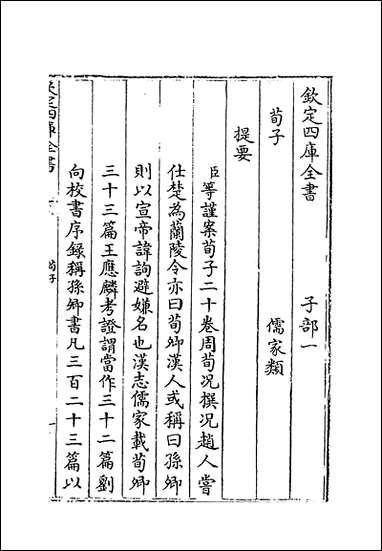 欽定四庫全書 子部一
荀子 儒家類
提要
臣等謹案荀子二十卷周荀况撰况趙人嘗
仕楚為蘭陵令亦曰荀卿漢人或稱曰孫卿
則以宣帝諱詢避嫌名也漢志儒家載荀卿
三十三篇王應麟考證謂當作三十二篇劉
向校書序録稱孫卿書凡三百二十三篇以
欽定四庫全書 荀子